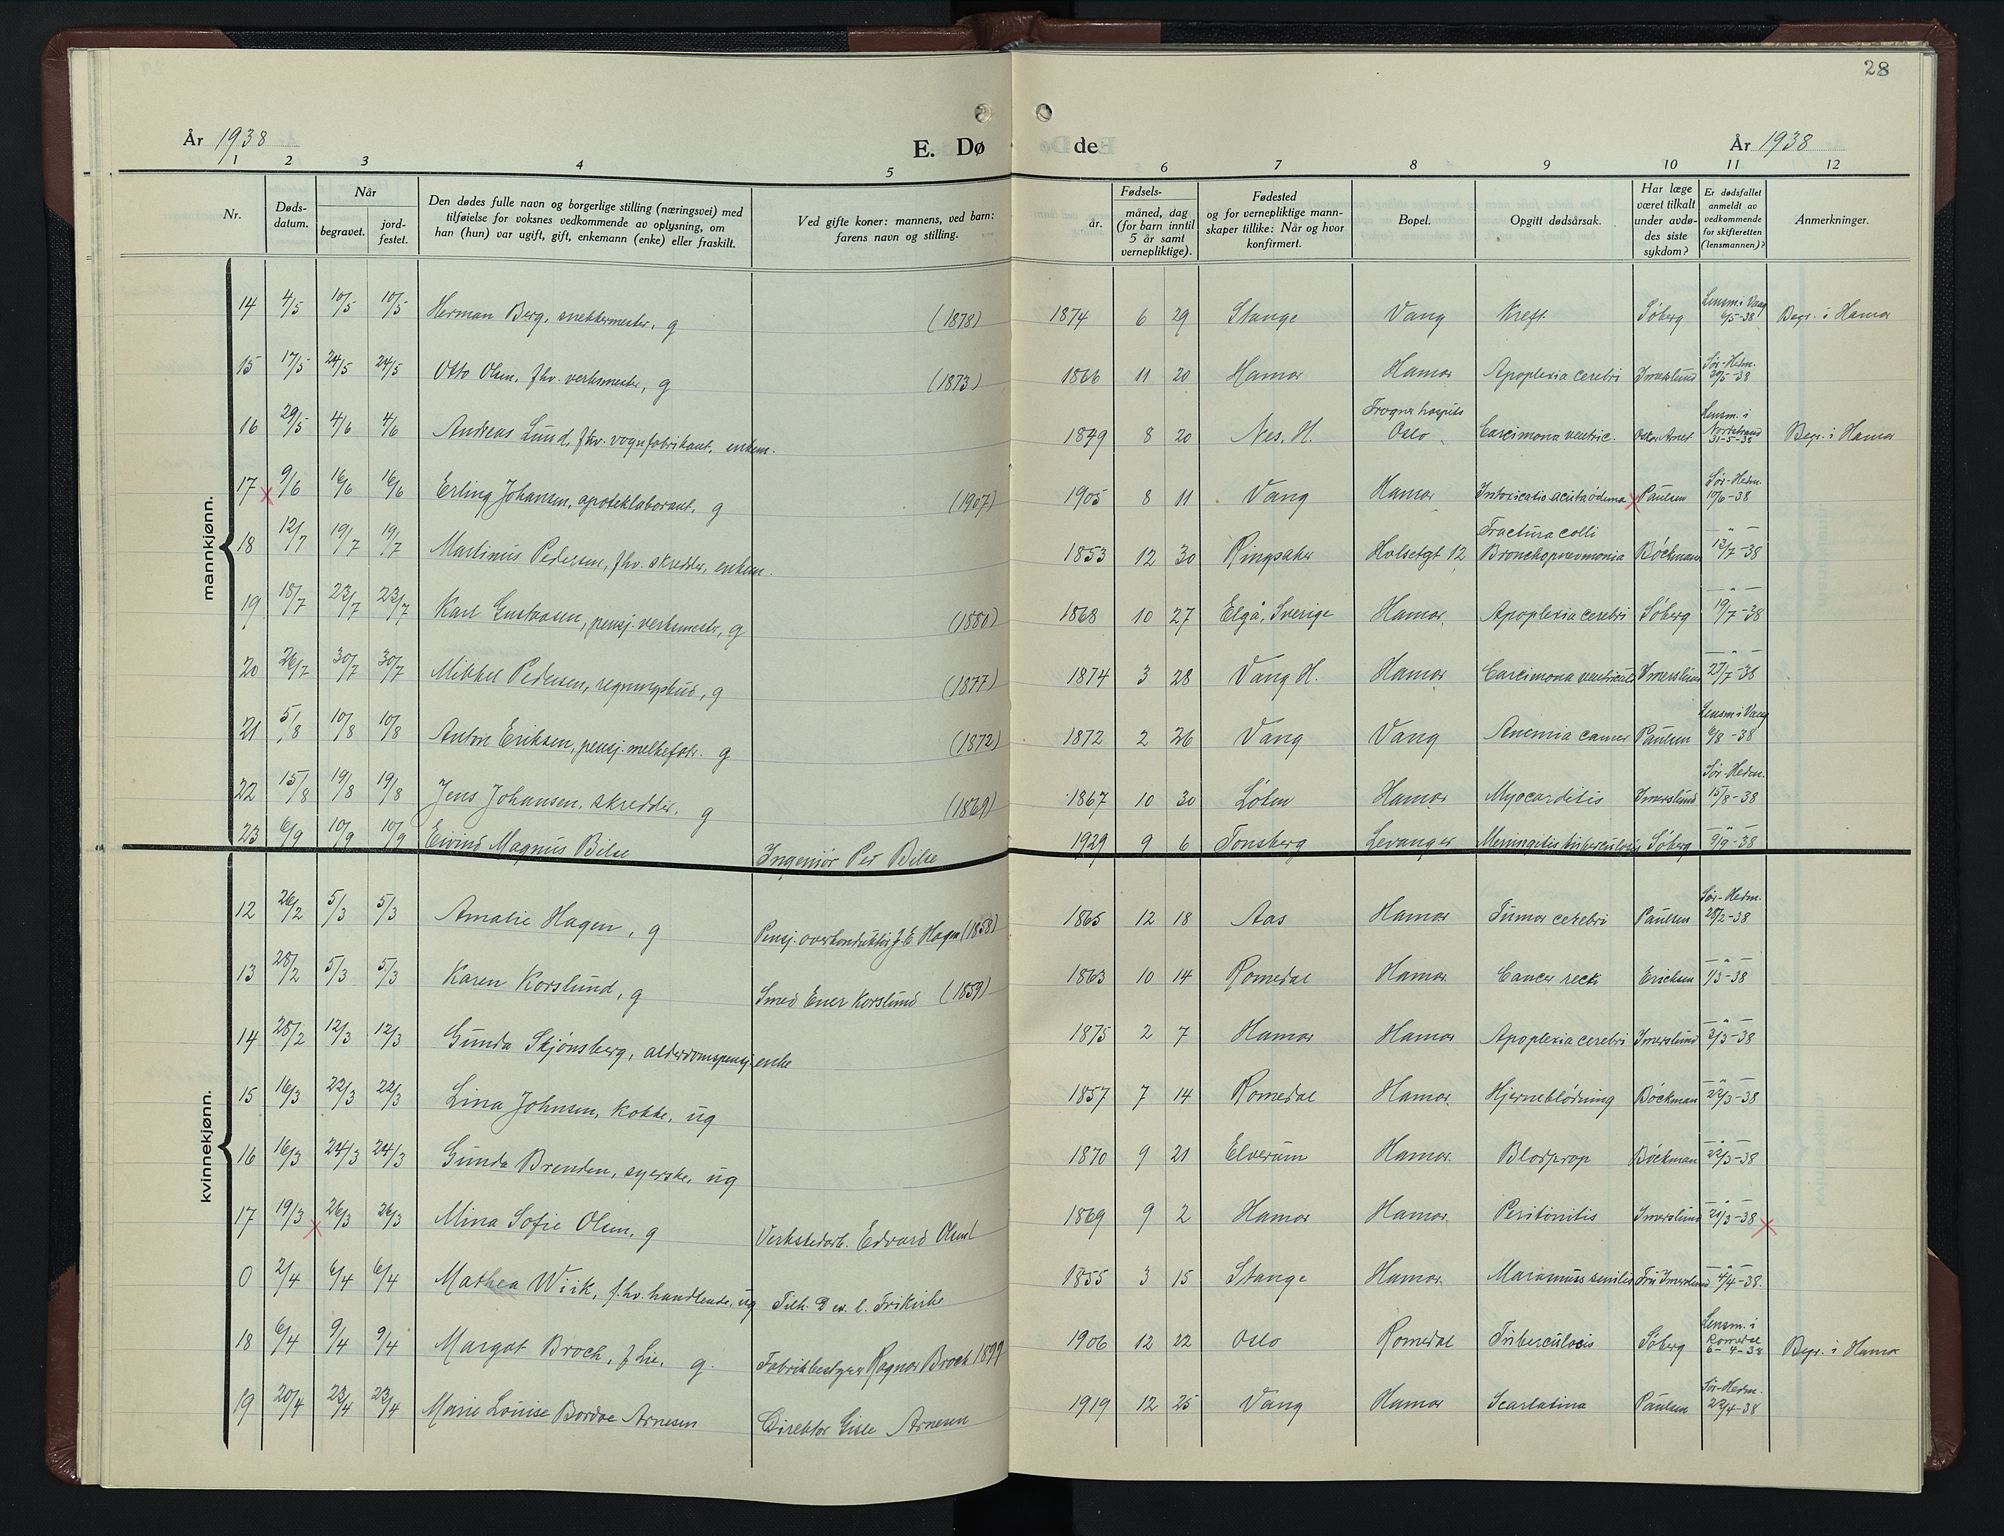 28
År 1938 E. Dø de År 1938
1 2 3 4 5 6 7 8 9 10 11 12
Nr.
Døds-
datum.
Når
begravet.
jord-
festet.
Den dødes fulle navn og borgerlige stilling (næringsvei) med
tilføielse for voksnes vedkommende av oplysning, om
han (hun) var ugift, gift, enkemann (enke) eller fraskilt.
Ved gifte koner: mannens, ved barn:
farens navn og stilling.
Fødsels-
år.
måned, dag
(for barn inntil
5 år samt
vernepliktige).
Fødested
og for vernepliktige mann-
skaper tillike: Når og hvor
konfirmert.
Bopel.
Opgitt dødsårsak.
Har læge
været tilkalt
under avdø-
des siste
sykdom?
Er dødsfallet
anmeldt av
vedkommende
for skifteretten
(lensmannen)?
Anmerkninger.
mannkjønn.
14 4/5 10/5 10/5 Herman Berg, snekkermester, g (1878) 1874 6 29 Stange Vang Kreft Søberg Lensm. i Vang 6/5-38 Begr. i Hamar
15 17/5 24/5 24/5 Otto Olsen, fhv. verksmester, g (1873) 1866 11 20 Hamar Hamar Apoplexia cerebri Imerslund Sør-Hedm. 20/5-38
16 29/5 4/6 4/6 Andreas Lund, fhv. vognfabrikant, enkem. 1849 8 20 Nes, H. Frogner hospits Oslo Carcimona ventric. Oskar Arnet Lensm. i Nordstrand 31-5-38 Begr. i Hamar
17 9/6 16/6 16/6 Erling Johansen, apoteklaborant, g (1907) 1905 8 11 Vang Hamar Intoxicatio acuta ödema Paulsen Sør-Hedm. 10/6-38
18 12/7 19/7 19/7 Martinus Pedersen, fhv. skredder, enkem. 1853 12 30 Ringsaker Holsetgt 12 Fractura colli Bronchopneumonia Böckman — " — 13/7-38
19 18/7 23/7 23/7 Karl Gustavsen, pensj. verksmester, g (1880) 1868 10 27 Elgå, Sverige Hamar. Apoplexia cerebri Søberg — " — 19/7-38
20 26/7 30/7 30/7 Mikkel Pedersen, regningsbud, g (1877) 1874 3 28 Vang H. Hamar Carcimona ventriculi Imerslund — " — 27/7-38
21 5/8 10/8 10/8 Anton Eriksen, pensj. melkefabr. g (1872) 1872 2 26 Vang Vang Anemia cancer Paulsen Lensm i Vang 6/8-38
22 15/8 19/8 19/8 Jens Johansen, skredder, g (1869) 1867 10 30 Løten Hamar Myocarditis Imerslund Sør-Hedm. 15/8-38
23 6/9 10/9 10/9 Eivind Magnus Bilse Ingeniør Per Bilse 1929 9 6 Tønsberg Levanger Meningitis tuberculosis Søberg — " — 9/9-38
kvinnekjønn.
12 26/2 5/3 5/3 Amalie Hagen, g Pensj. overkonduktør J. E. Hagen (1858) 1865 12 18 Aas Hamar Tumor cerebri Paulsen Sør-Hedm. 28/2-38
13 28/2 5/3 5/3 Karen Korslund, g Smed Ener Korslund (1859) 1863 10 14 Romedal Hamar. Cancer recti Ericksen — " — 1/3-38
14 28/2 12/3 12/3 Gunda Skjønsberg, alderdomspensj. enke 1875 2 7 Hamar Hamar Apoplexia cerebri Imerslund — " — 2/3-38
15 16/3 22/3 22/3 Lina Johnsen, kokke, ug 1857 7 14 Romedal Hamar. Hjerneblödning Böckman — " — 22/3-38
16 16/3 24/3 24/3 Gunda Brenden, syerske, ug 1870 9 21 Elverum Hamar. Blodprop Böckman — " — 22/3-38
17 19/3 26/3 26/3 Mina Sofie Olsen, g Verkstedarb. Edvard Olsen 1869 9 2 Hamar Hamar. Peritonitis Imerslund — " — 21/3-38
0 2/4 6/4 6/4 Mathea Wiik, f.hv. handlende, ug Tilh. D ev. l. Frikirke 1855 3 15 Stange Hamar. Marasmus senilis Fru Imerslund — " — 4/4-38.
18 6/4 9/4 9/4 Margot Broch, f Lie, g. Fabrikbestyrer Ragnar Broch 1899 1906 12 22 Oslo Romedal Tuberculosis Søberg Lensm. i Romedal 6-4-38 Begr. i Hamar
19 20/4 23/4 23/4 Marie Louise Bordoe Arnesen Direktør Gisle Arnesen 1919 12 25 Vang Hamar Scarlatina Paulsen Sør-Hedm. 22/4-38